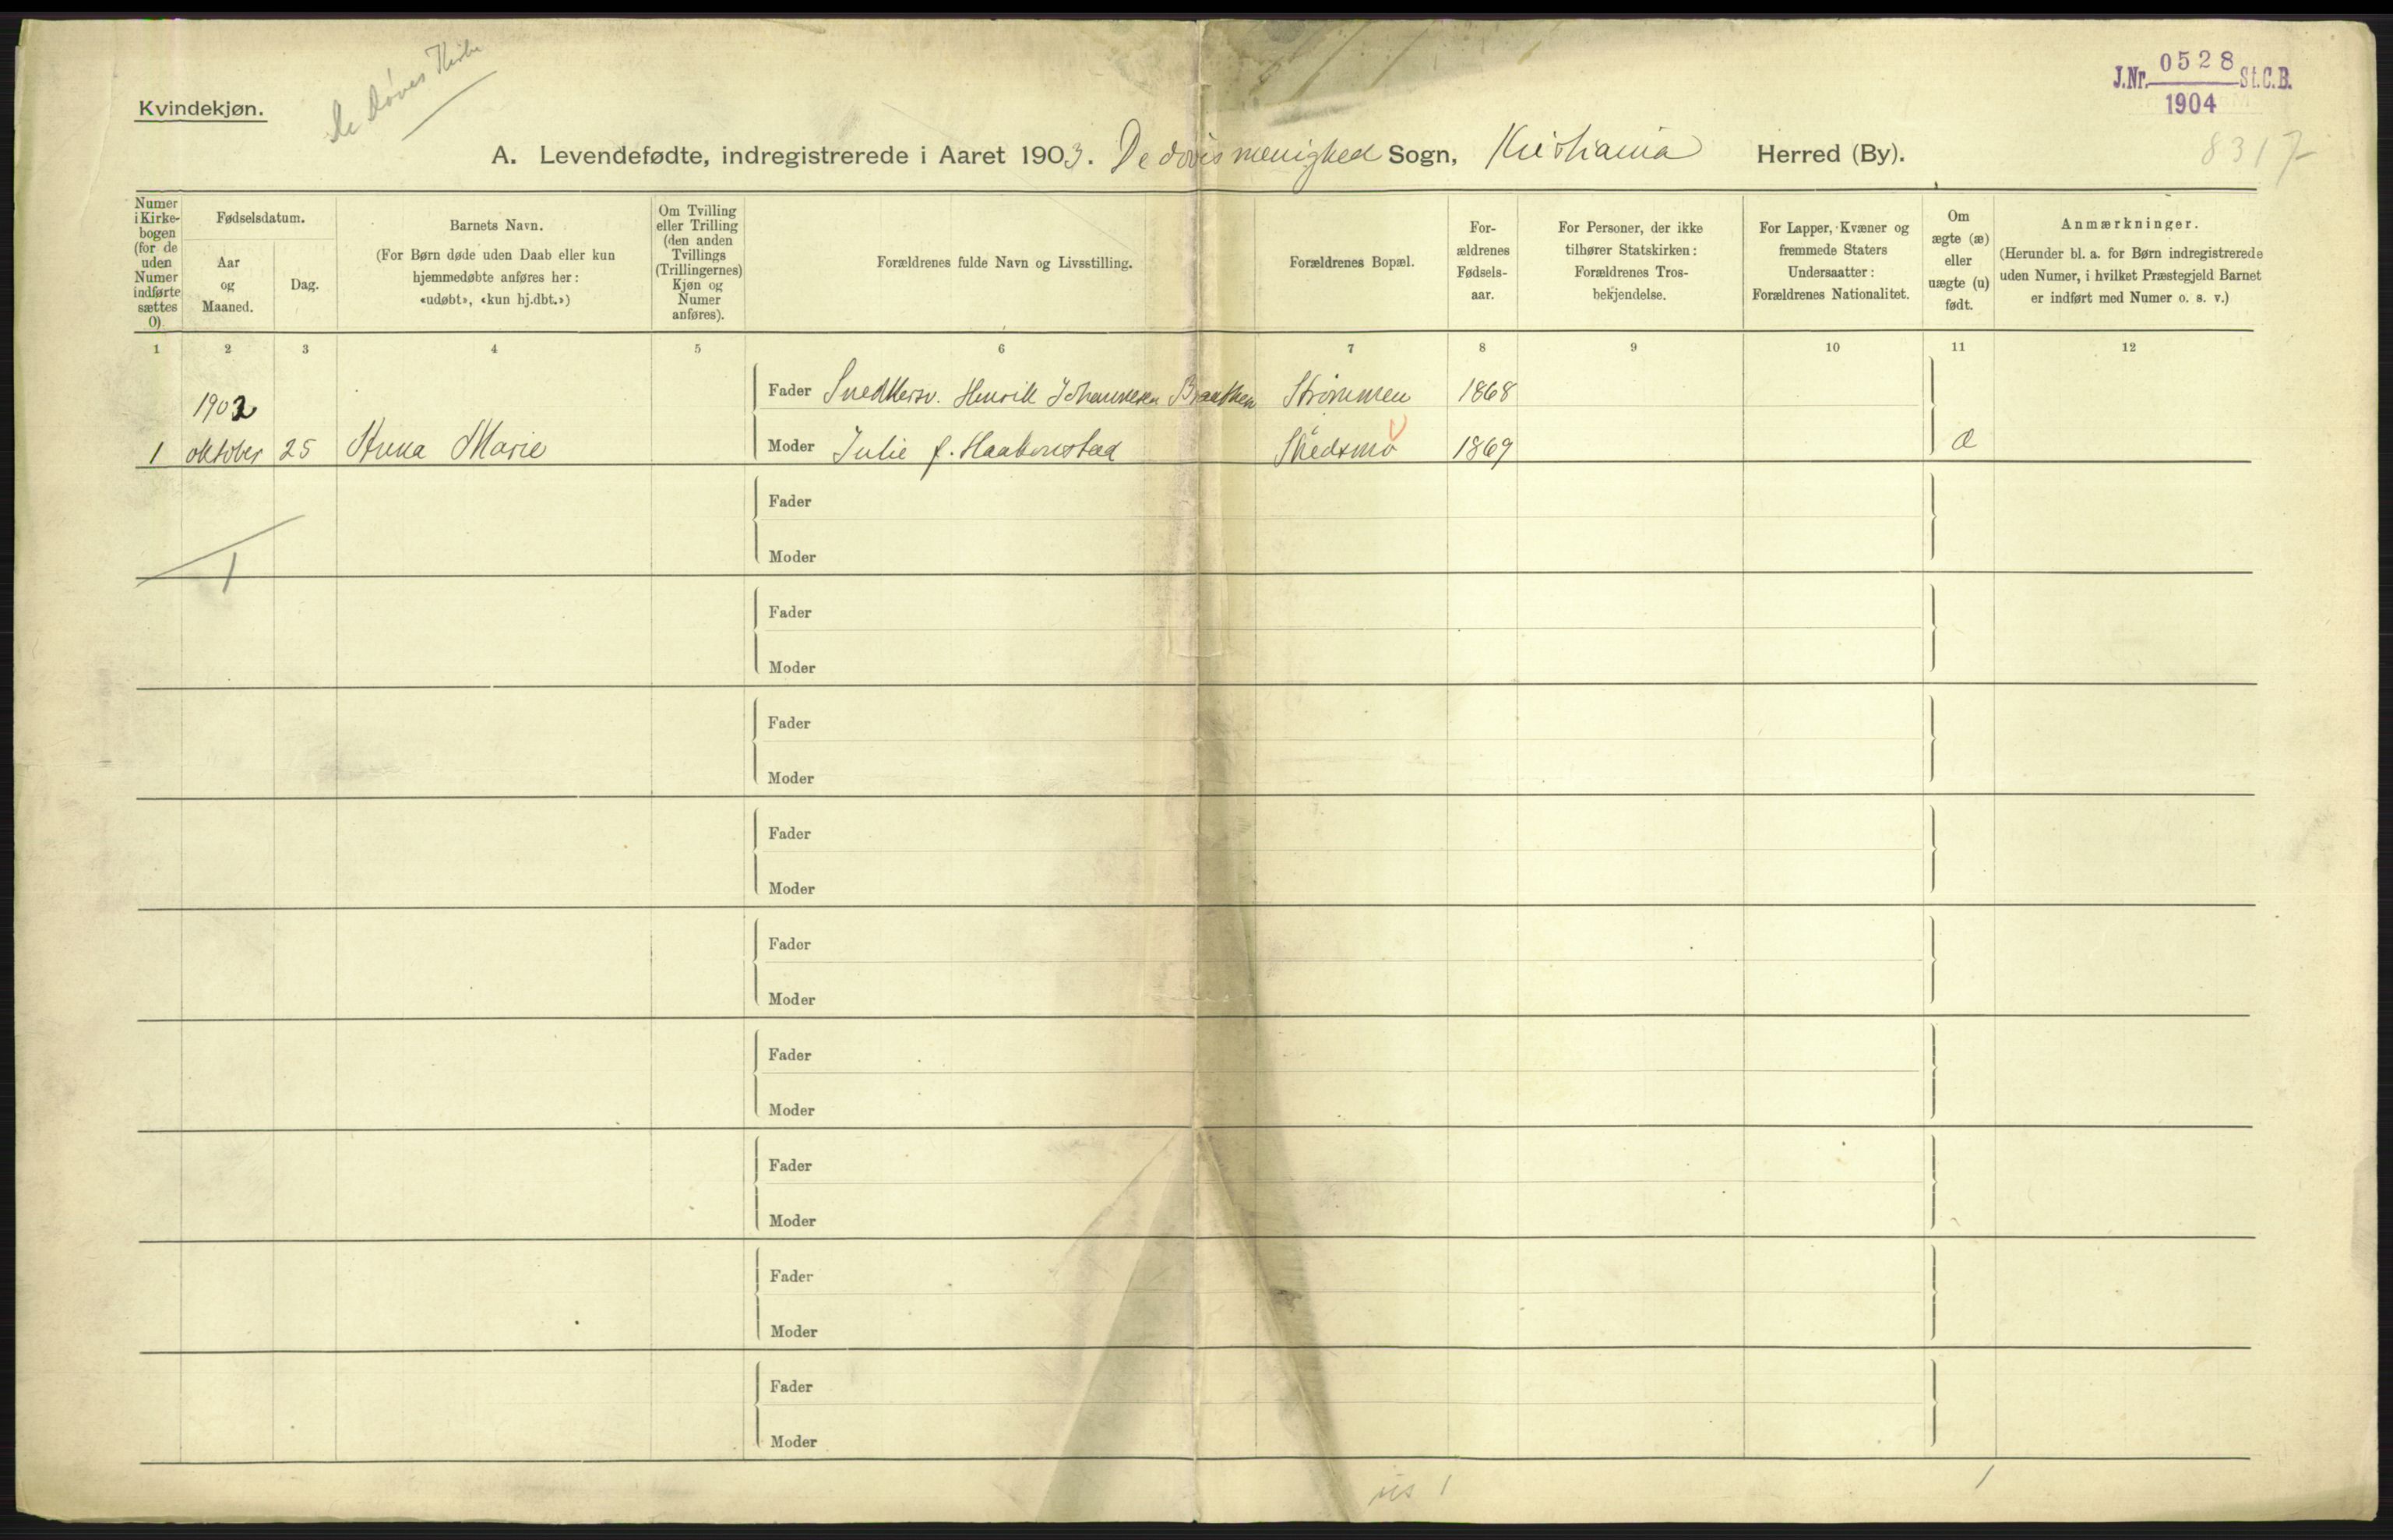 De døves Kirke
Kvindekjøn.
J.Nr. 0528 St.C.B.
1904
8317
A. Levendefødte, indregistrerede i Aaret 1903. De døves menighed Sogn, Kristiania Herred (By).
Numer i Kirke-bogen (for de uden Numer indførte sættes 0).
Fødselsdatum.
Aar og Maaned.
Dag.
Barnets Navn.
(For Børn døde uden Daab eller kun
hjemmedøbte anføres her:
«udøbt», «kun hj.dbt.»)
Om Tvilling
eller Trilling
(den anden
Tvillings
(Trillingernes)
Kjøn og
Numer
anføres).
Forældrenes fulde Navn og Livsstilling.
Forældrenes Bopæl.
For-
ældrenes
Fødsels-
aar.
For Personer, der ikke
tilhører Statskirken:
Forældrenes Tros-
bekjendelse.
For Lapper, Kvæner og
fremmede Staters
Undersaatter:
Forældrenes Nationalitet.
Om
ægte (æ)
eller
uægte (u)
født.
Anmærkninger.
(Herunder bl. a. for Børn indregistrerede
uden Numer, i hvilket Præstegjeld Barnet
er indført med Numer o. s. v.)
1 2 3 4 5 6 7 8 9 10 11 12
1902 Fader Snedkersv. Henrik Johannesen Braathen Strømmen 1868
1 oktober 25 Anna Marie Moder Julie f. Haakenstad Skedsmo 1869 æ
Fader
1
Moder
Fader
Moder
Fader
Moder
Fader
Moder
Fader
Moder
Fader
Moder
Fader
Moder
Fader
Moder
Fader
Moder
1 1